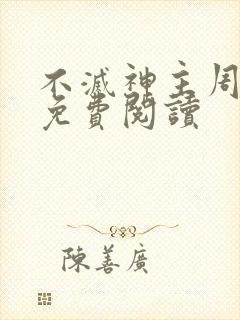 不滅神主周
免費閱讀
陳善廣